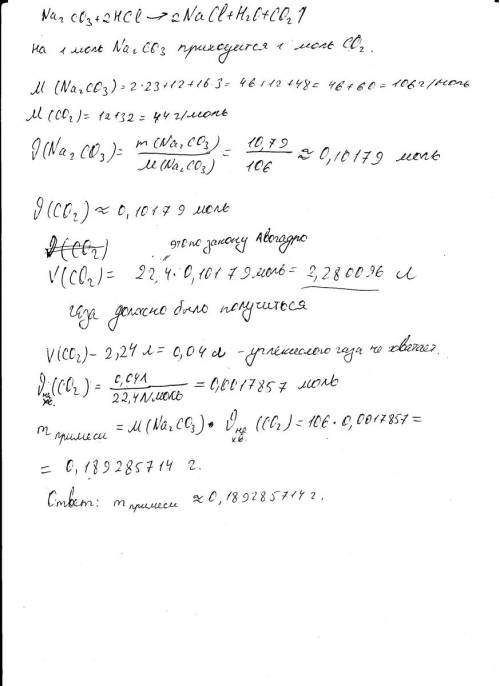 Na₂CO₃+2HCl→2NaCl+H₂O+CO₂↑
на 1 моль Na₂CO₃ приходится 1 моль CO₂.
M (Na₂CO₃)=2·23+12+16·3=46+12+48=46+60=106 г/моль
M(CO₂)=12+32=44 г/моль
ϑ(Na₂CO₃)= m(Na₂CO₃)/M(Na₂CO₃) = 10,79/106 ≈ 0,10179 моль
ϑ(CO₂) ≈ 0,10179 моль
ϑ(CO₂) это по закону Авогадро
V(CO₂)= 22,4·0,10179 моль= 2,280096 л
газа должно было получиться
V(CO₂)-2,24 л=0,04 л - углекислого газа не хватает.
ϑ не хв. (CO₂)= 0,04л/22,4 л/моль = 0,0017857 моль
m примеси = M(Na₂CO₃)·ϑ не хв. (CO₂)=106·0,0017857=
= 0,189285714 г.
Ответ: m примеси ≈0,189285714 г.